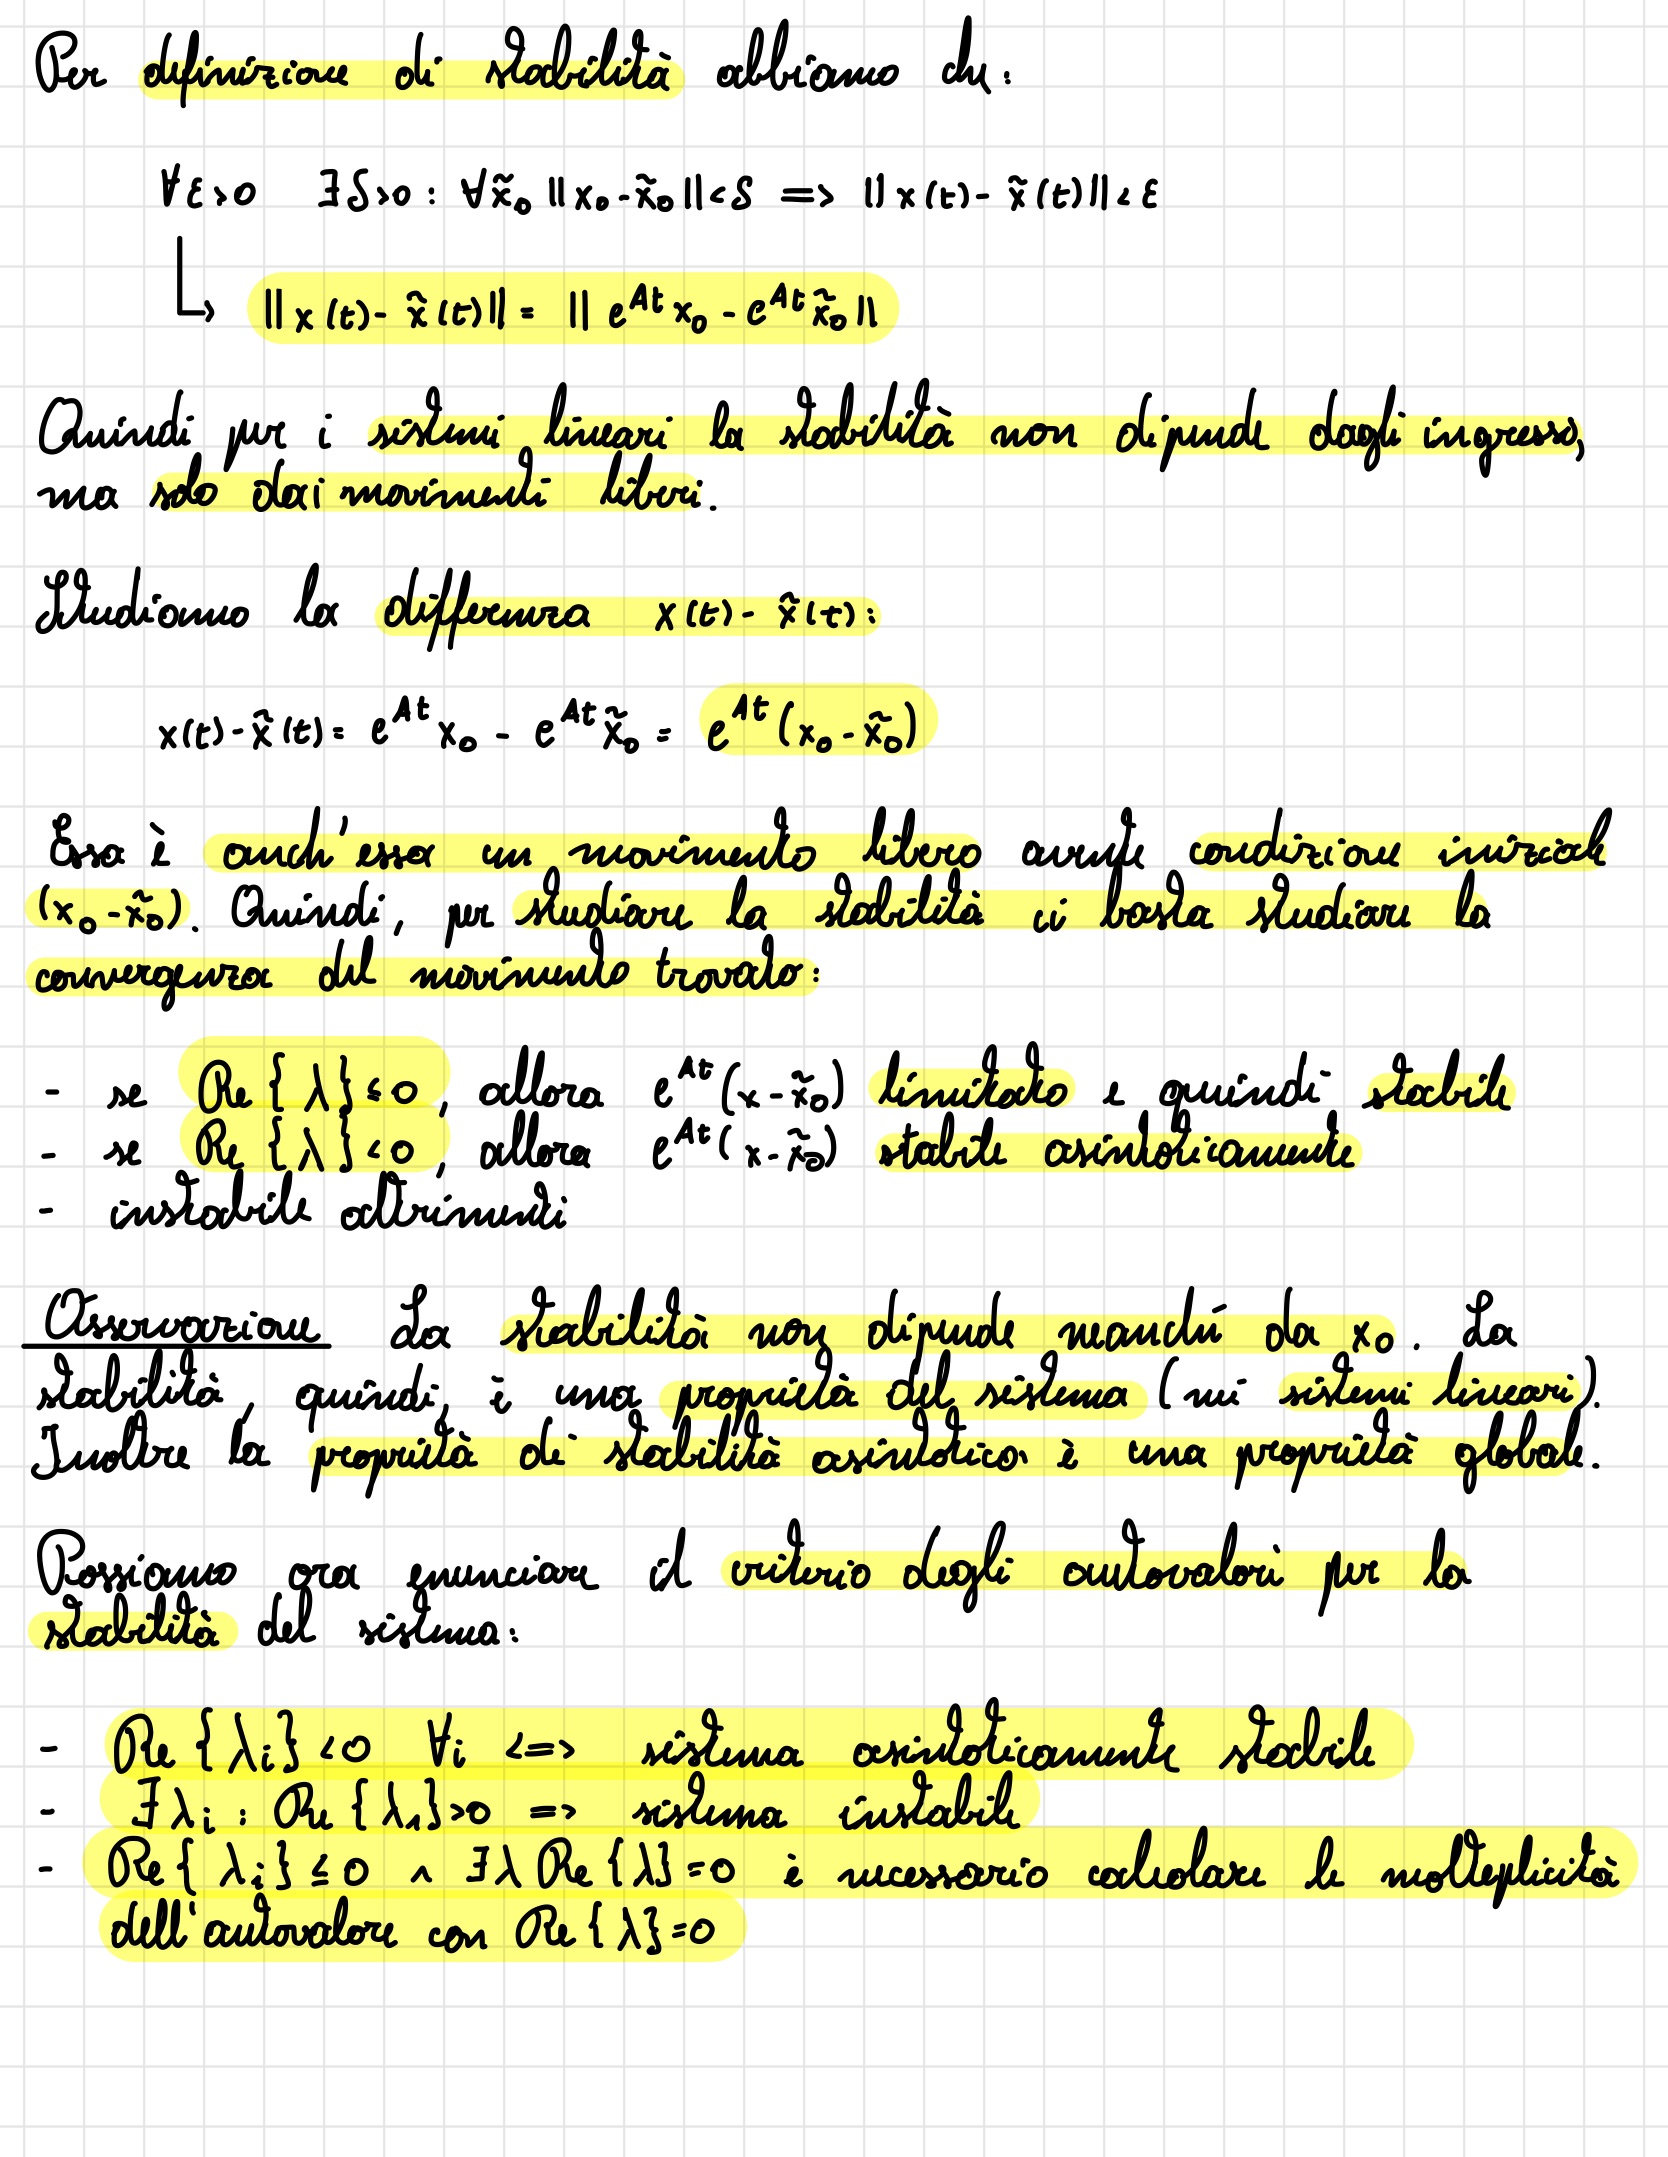 Per definizione di stabilità abbiamo che:
∀ε>0 ∃δ>0 : ∀x̃₀ ||x₀-x̃₀||<δ => ||x(t)- x̃(t)||<ε
↳ ||x(t)- x̃(t)|| = ||e^{At}x₀ - e^{At}x̃₀||
Quindi per i sistemi lineari la stabilità non dipende dagli ingressi,
ma solo dai movimenti liberi.
Studiamo la differenza x(t)- x̃(t):
x(t)-x̃(t)= e^{At}x₀ - e^{At}x̃₀ = e^{At}(x₀-x̃₀)
Essa è anch'essa un movimento libero avente condizione iniziale
(x₀-x̃₀). Quindi, per studiare la stabilità ci basta studiare la
convergenza del movimento trovato:
- se Re{λ}≤0, allora e^{At}(x-x̃₀) limitato e quindi stabile
- se Re{λ}<0, allora e^{At}(x-x̃₀) stabile asintoticamente
- instabile altrimenti
Osservazione La stabilità non dipende neanché da x₀. La
stabilità, quindi, è una proprietà del sistema (nei sistemi lineari).
Inoltre la proprietà di stabilità asintotica è una proprietà globale.
Possiamo ora enunciare il criterio degli autovalori per la
stabilità del sistema:
- Re{λᵢ}<0 ∀i <=> sistema asintoticamente stabile
- ∃λᵢ : Re{λ₁}>0 => sistema instabile
- Re{λᵢ}≤0 ∧ ∃λ Re{λ}=0 è necessario calcolare le molteplicità
dell'autovalore con Re{λ}=0